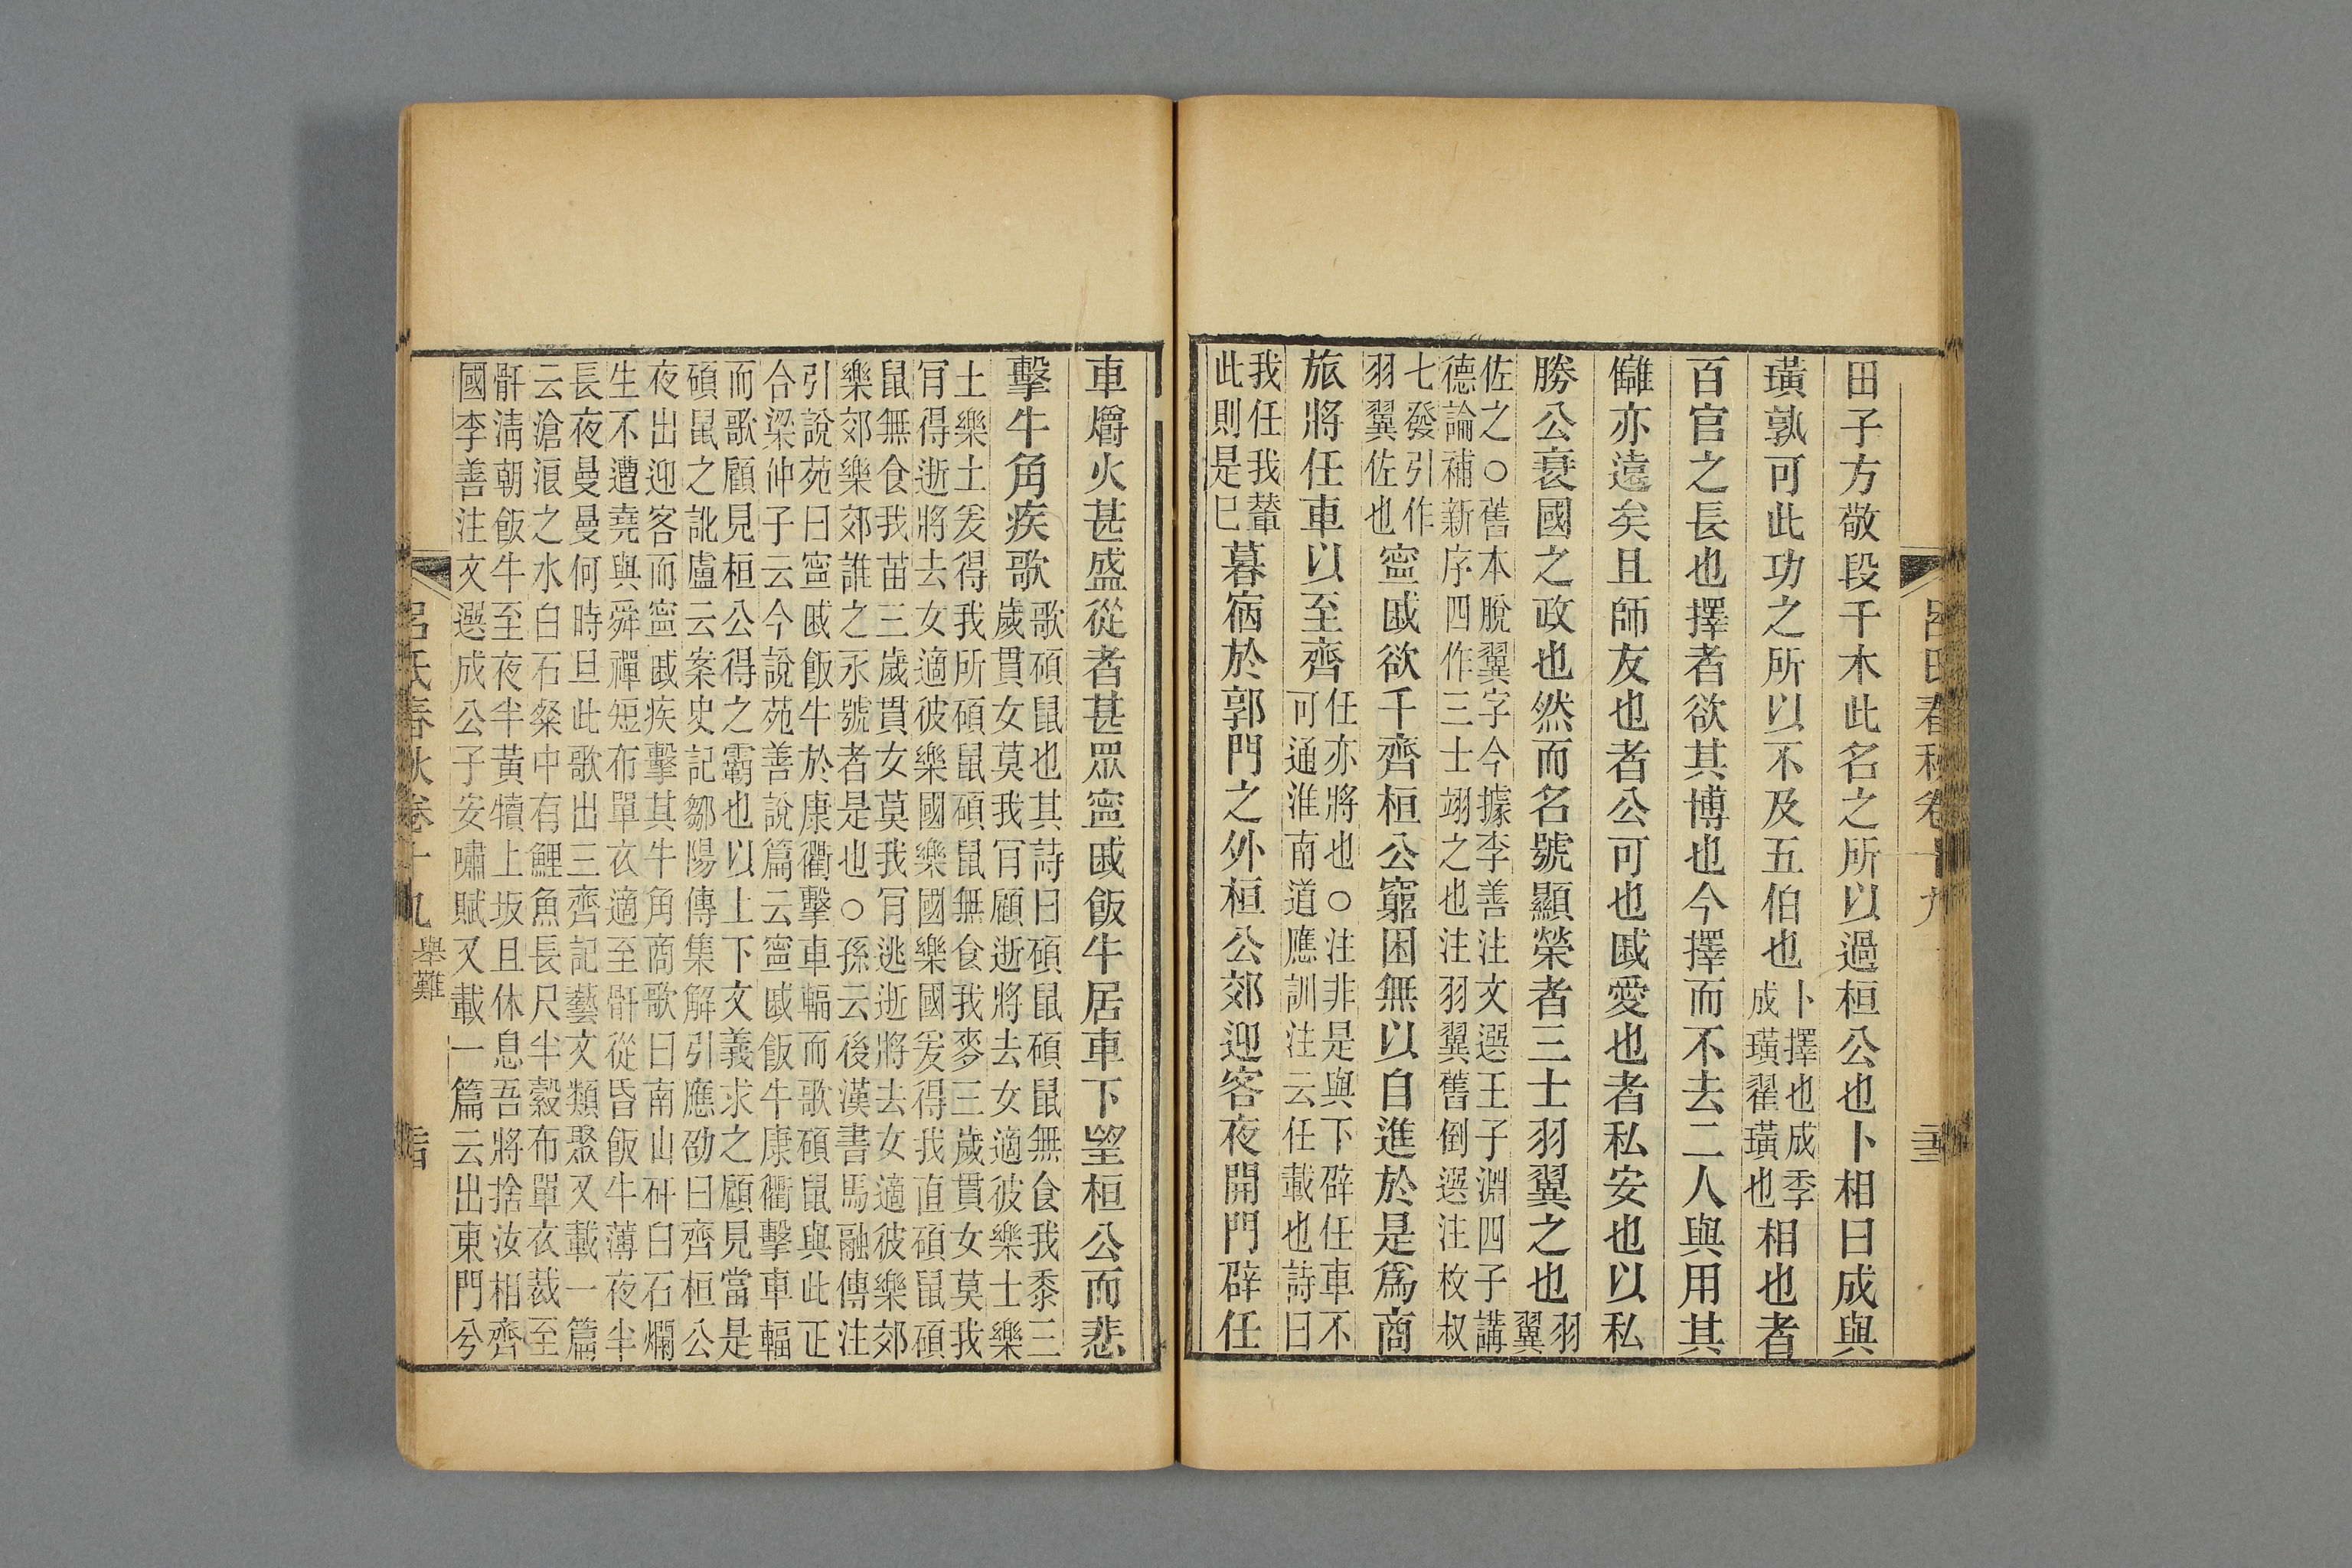 呂氏春秋卷十九
田子方敬段干木此名之所以過桓公也卜相曰成與
璜孰可此功之所以不及五伯也
卜擇也成季
成璜翟璜也
相也者
百官之長也擇者欲其博也今擇而不去二人與用其
讎亦遠矣且師友也者公可也戚愛也者私安也以私
勝公衰國之政也然而名號顯榮者三士羽翼之也
羽
翼
佐之○舊本脫翼字今據李善注文選王子淵四子講
德論補新序四作三士翊之也注羽翼舊倒選注枚叔
七發引作
羽翼佐也
甯戚欲干齊桓公窮困無以自進於是爲商
旅將任車以至齊
任亦將也○注非是與下辟任車不
可通淮南道應訓注云任載也詩曰
我任我輦
此則是已
暮宿於郭門之外桓公郊迎客夜開門辟任
車爝火甚盛從者甚眾甯戚飯牛居車下望桓公而悲
擊牛角疾歌
歌碩鼠也其詩曰碩鼠碩鼠無食我黍三
歲貫女莫我肯顧逝將去女適彼樂土樂
土樂土爰得我所碩鼠碩鼠無食我麥三歲貫女莫我
肯得逝將去女適彼樂國樂國樂國爰得我直碩鼠碩
鼠無食我苗三歲貫女莫我肯逃逝將去女適彼樂郊
樂郊樂郊誰之永號者是也○孫云後漢書馬融傳注
引說苑曰甯戚飯牛於康衢擊車輻而歌碩鼠與此正
合梁仲子云今說苑善說篇云甯戚飯牛康衢擊車輻
而歌顧見桓公得之霸也以上下文義求之顧見當是
碩鼠之訛盧云案史記鄒陽傳集解引應劭曰齊桓公
夜出迎客而甯戚疾擊其牛角商歌曰南山矸白石爛
生不遭堯與舜禪短布單衣適至骭從昏飯牛薄夜半
長夜曼曼何時旦此歌出三齊記藝文類聚又載一篇
云滄浪之水白石粲中有鯉魚長尺半縠布單衣裁至
骭淸朝飯牛至夜半黃犢上坂且休息吾將捨汝相齊
國李善注文選成公子安嘯賦又載一篇云出東門兮
呂氏春秋卷十九
舉難